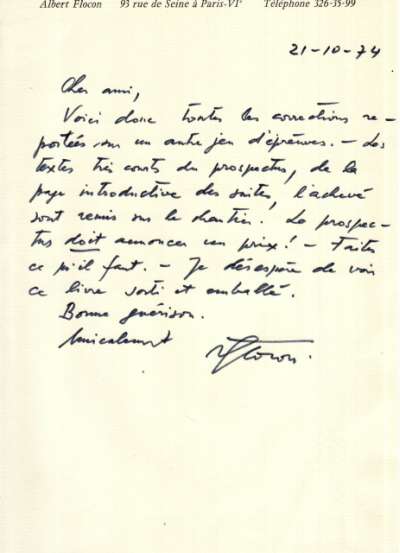 Albert Flocon 93 rue de Seine à Paris-VIᵉ Téléphone 326-35-99
21-10-74
Cher ami,
Voici donc toutes les corrections re-
portées sur un autre jeu d'épreuves. — Les
textes très courts du prospectus, de la
page introductive des suites, l'achevé
sont remis sur le chantier. Le prospec-
tus doit annoncer un prix! — Faites
ce qu'il faut. — Je désespère de voir
ce livre sorti et emballé.
Bonne guérison.
Amicalement
Flocon.